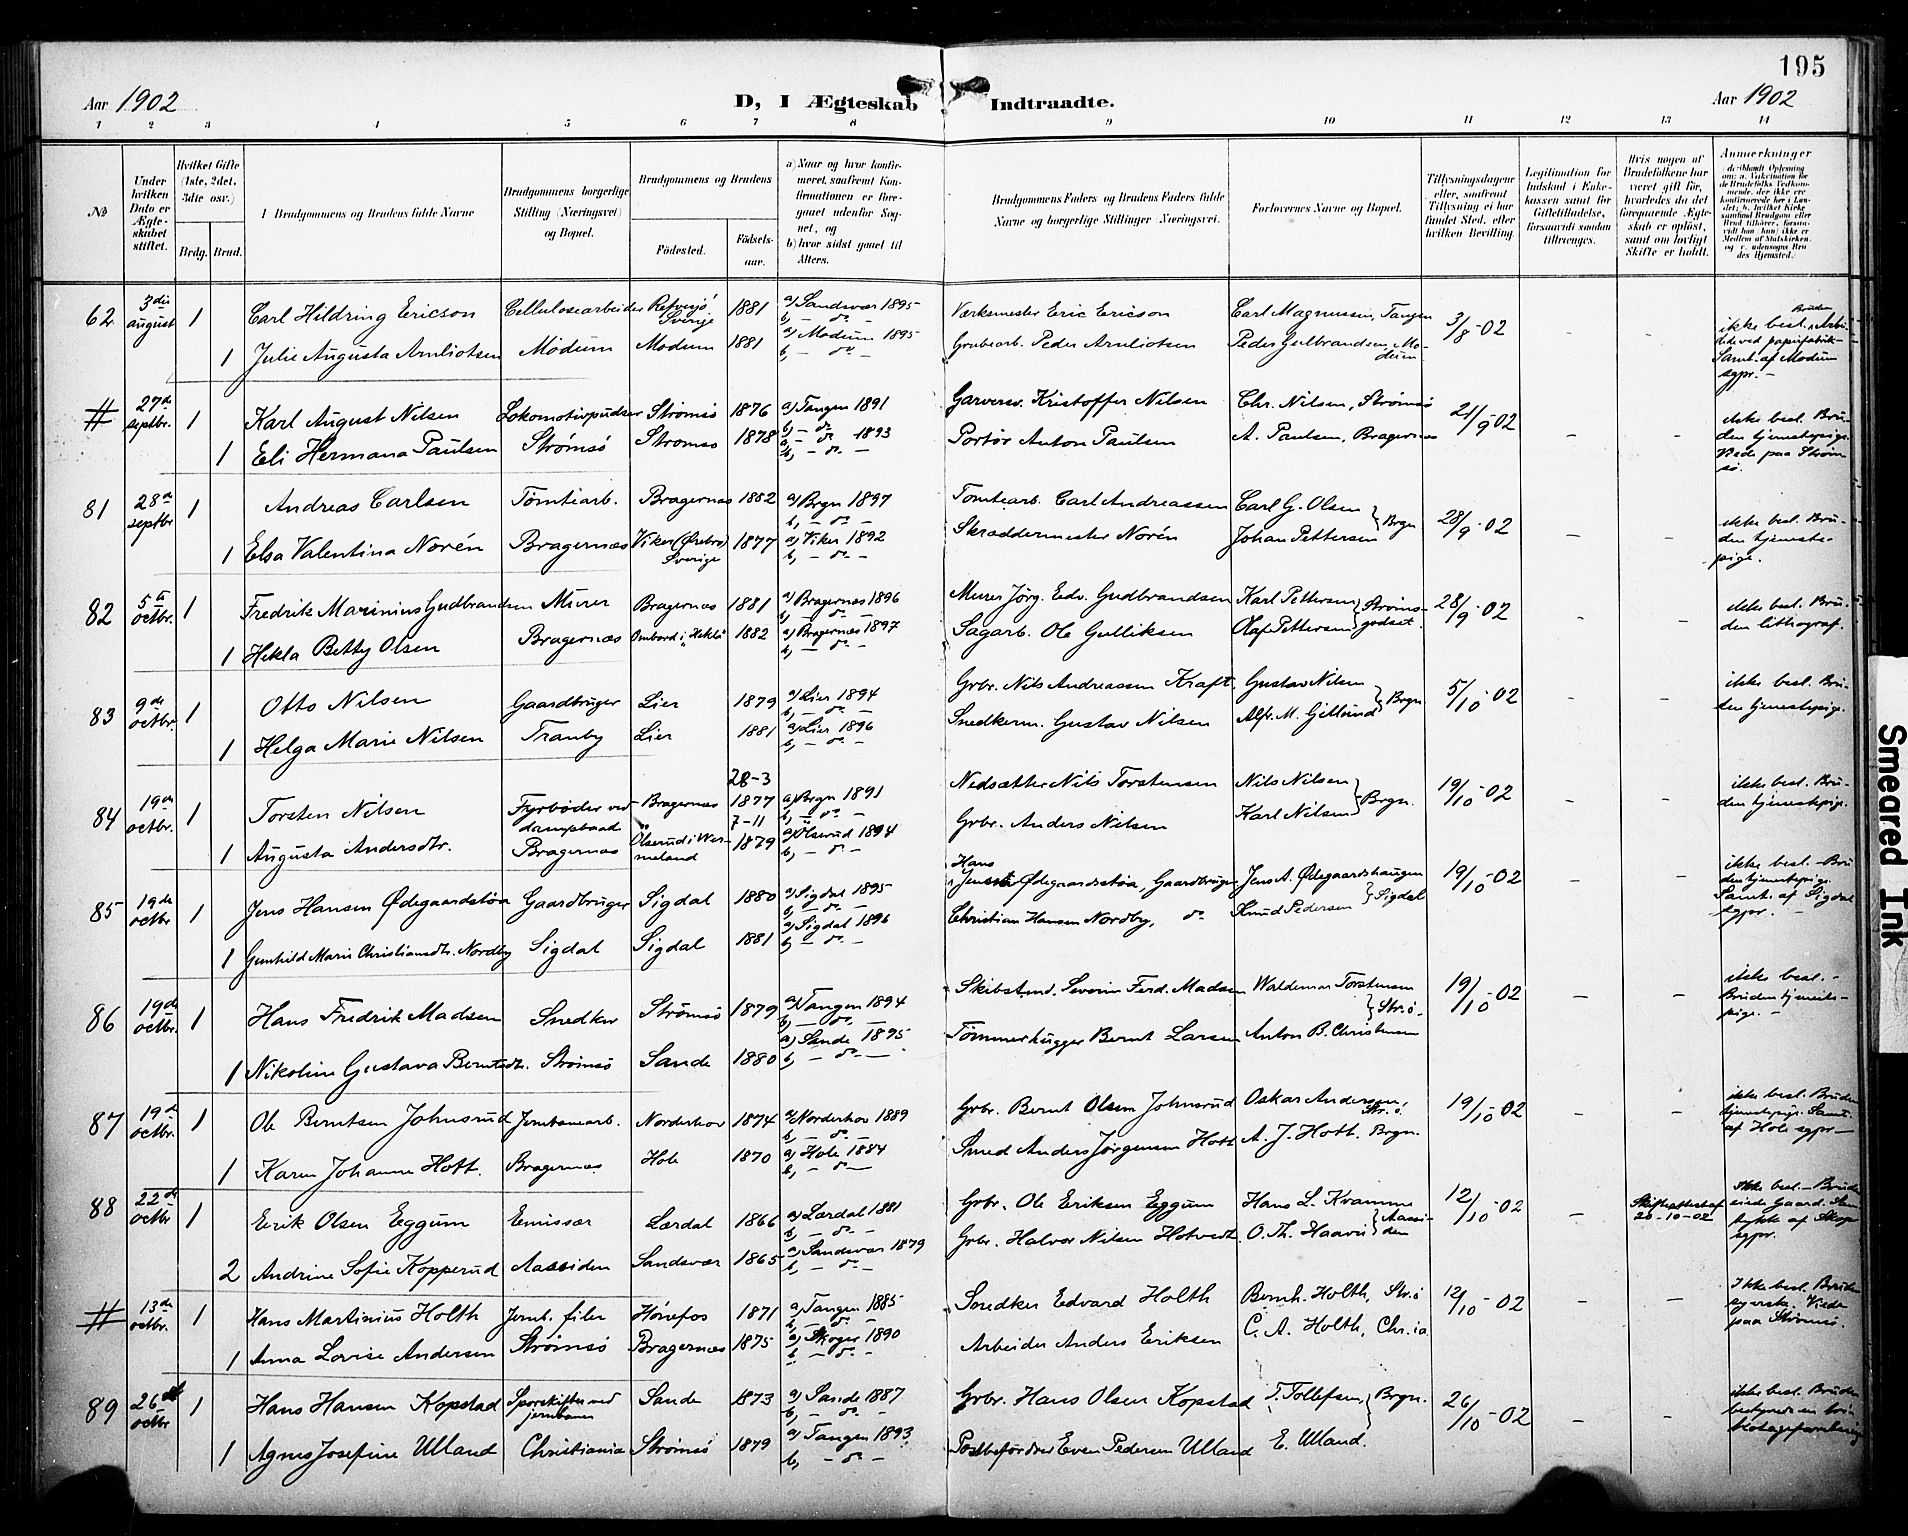 195
Aar 1902
D, I Ægteskab Indtraadte.
Aar 1902
1 2 3 4 5 6 7 8 9 10 11 12 13 14
No
Under hvilken Dato er Ægteskabet stiftet.
Hvilket Gifte (1ste, 2det, 3die osv.)
Brdg. Brud.
Brudgommens og Brudens fulde Navne
Brudgommens borgerlige Stilling (Næringsvei) og Bopæl.
Brudgommens og Brudens
Fødested.
Fødselsaar.
a) Naar og hvor konfirmeret, saafremt Konfirmationen er foregaaet udenfor Sognet, og
b) hvor sidst gaaet til Alters.
Brudgommens Faders og Brudens Faders fulde Navne og borgerlige Stillinger Næringsvei.
Forlovernes Navne og Bopæl.
Tillysningsdagene eller, saafremt Tillysning ei har fundet Sted, efter hvilken Bevilling.
Legitimation for Indskud i Enkekassen samt for Giftetilladelse, forsaavidt saadan tiltrænges.
Hvis nogen af Brudefolkene har været gift før, hvorledes da det foregaaende Ægteskab er opløst, samt om lovligt Skifte er holdt.
Anmærkninger
62 3die august 1 Carl Hildring Ericson Cellulosearbeider Sverige 1881 a) Sandsvær 1895 b, – do – Værksmester Eric Ericson Carl Magnussen, Tangen 3/8-02 – –
1 Julie Augusta Arnliotsen Modum Modum 1881 a) Modum 1895 b, – do – Grubearb. Peder Arnliotsen Peder Gulbrandsen, Modum
Bruden ikke besl., Arbeider ved papirfabrik – Samt. af Modum sgpr. –
# 27de septbr. 1 Karl August Nilsen Lokomotivpudser Strømsø 1876 a) Tangen 1891 b, – do Garversv. Kristoffer Nilsen Chr. Nilsen, Strømsø 21/9-02 – –
1 Eli Hermana Paulsen Strømsø Strømsø 1878 a, – do 1893 b, – do – Portør Anton Paulsen A. Paulsen, Bragernæs
ikke besl. Bruden tjenestepige. Viede paa Strømsø.
81 28de septbr 1 Andreas Carlsen Tomtearb. Bragernæs 1882 a) Brgn 1897 b, – do – Tomtearb. Carl Andreassen Carl G. Olsen } Brgn 28/9-02 – –
1 Elsa Valentina Norén Bragernæs Viker (Ørebro) Sverige 1877 a) Viker 1892 b, – do – Skræddermester Norén Johan Pettersen
ikke besl. Bruden tjenestepige.
82 5te octbr. 1 Fredrik Marinius Gudbrandsen Murer Bragernæs 1881 a) Bragernæs 1896 b, – do – Murer Jørg. Edv. Gudbrandsen Karl Pettersen } Strømsgodset. 28/9-02 – –
1 Hekla Betty Olsen Bragernæs Ombord i "Hekla" 1882 a) Bragernæs 1897 b, – do – Sagarb. Ole Gulliksen Olaf Pettersen
ikke besl. Bruden lithograf.
83 9de octbr. 1 Otto Nilsen Gaardbruger Lier 1879 a) Lier 1894 b, – do – Grbr. Nils Andreassen Kraft. Gustav Nilsen } Brgn 5/10-02 – –
1 Helga Marie Nilsen Tranby Lier 1881 a) Lier 1896 b, – do – Snedkerm. Gustav Nilsen Alfr. M. Gjellund
ikke besl. Bruden tjenestepige.
84 19de octbr. 1 Torsten Nilsen Fyrbøder ved dampbaad 28-3 Bragernæs 1877 a) Brgn 1891 b, – do – Nedsætter Nils Torstensen Nils Nilsen } Brgn. 19/10-02 – –
1 Augusta Andersdtr. Bragernæs Ölserud i Wermeland 7-11 1879 a) Ölserud 1894 b, – do – Grbr. Anders Nilsen Karl Nilsen
ikke besl. Bruden tjenestepige.
85 19de octbr 1 Jens Hansen Ødegaardstøa Gaardbruger Sigdal 1880 a) Sigdal 1895 b, – do – Hans Jensen Ødegaardsstøa, Gaardbruger Jens A. Ødegaardshaugen } Sigdal 19/10-02 – –
1 Gunhild Marie Christiansdtr. Nordby Sigdal Sigdal 1881 a) Sigdal 1896 b – do – Christian Hansen Nordby, do Knud Pedersen
ikke besl. – Bruden tjenestepige. Samt. af Sigdal sgpr. –
86 19de octbr. 1 Hans Fredrik Madsen Snedker Strømsø 1879 a) Tangen 1894 b, – do – Skibstmd. Severin Ferd. Madsen Waldemar Torstensen } Str.ø. 19/10-02 – –
1 Nikoline Gustava Berntsdtr. Strømsø Sande 1880 a) Sande 1895 b, – do – Tømmerhugger Bernt Larsen Anton B. Christensen
ikke besl. – Bruden tjenestepige. –
87 19de octbr. 1 Ole Berntsen Johnsrud Jernbanearb. Norderhov 1874 a) Norderhov 1889 b, – do – Grbr. Bernt Olsen Johnsrud Oskar Andersen, Str.ø. 19/10-02 – –
1 Karen Johanne Hott. Bragernæs Hole 1870 a) Hole 1884 b, – do – Smed Anders Jørgensen Hott A. J. Hott. Brgn.
ikke besl. Bruden tjenestepige. Samt. af Hole sgpr –
88 22de octbr 1 Erik Olsen Eggum Emissær Lærdal 1866 a) Lærdal 1881 b, – do – Grbr. Ole Eriksen Eggum Hans L. Kvamme } Aassiden 12/10-02 – Skifteattest af 20-10-02
2 Andrine Sofie Kopperud Aassiden Sandsvær 1865 a) Sandsvær 1879 b, – do – Grbr. Halvor Nilsen Hotvedt O. Th. Haavi
Ikke besl. – Bruden eiede Gaard. Samtykke af Skoger sgpr.
# 13de octbr. 1 Hans Martinius Holth Jernb. filer Hønefos 1871 a) Tangen 1885 b, – do – Snedker Edvard Holth Bernh. Holth, Str.ø 12/10-02 – –
1 Anna Lovise Andersen Strømsø Bragernæs 1875 a) Skoger 1890 b, – do – Arbeider Anders Eriksen C. A. Holth, Chr.ia
Ikke besl. Bruden syerske. Viede paa Strømsø.
89 26de octbr 1 Hans Hansen Kopstad Sporskifter ved jernbanen Sande 1873 a) Sande 1887 b, – do – Grbr. Hans Olsen Kopstad T. Tollefsen, } Brgn. 26/10-02 – –
1 Agnes Josefine Ulland Christiania Strømsø 1879 a) Tangen 1893 b, – do – Postbefordrer Even Pedersen Ulland E. Ulland.
ikke besl. Bruden bestyrede en
Smeared Ink